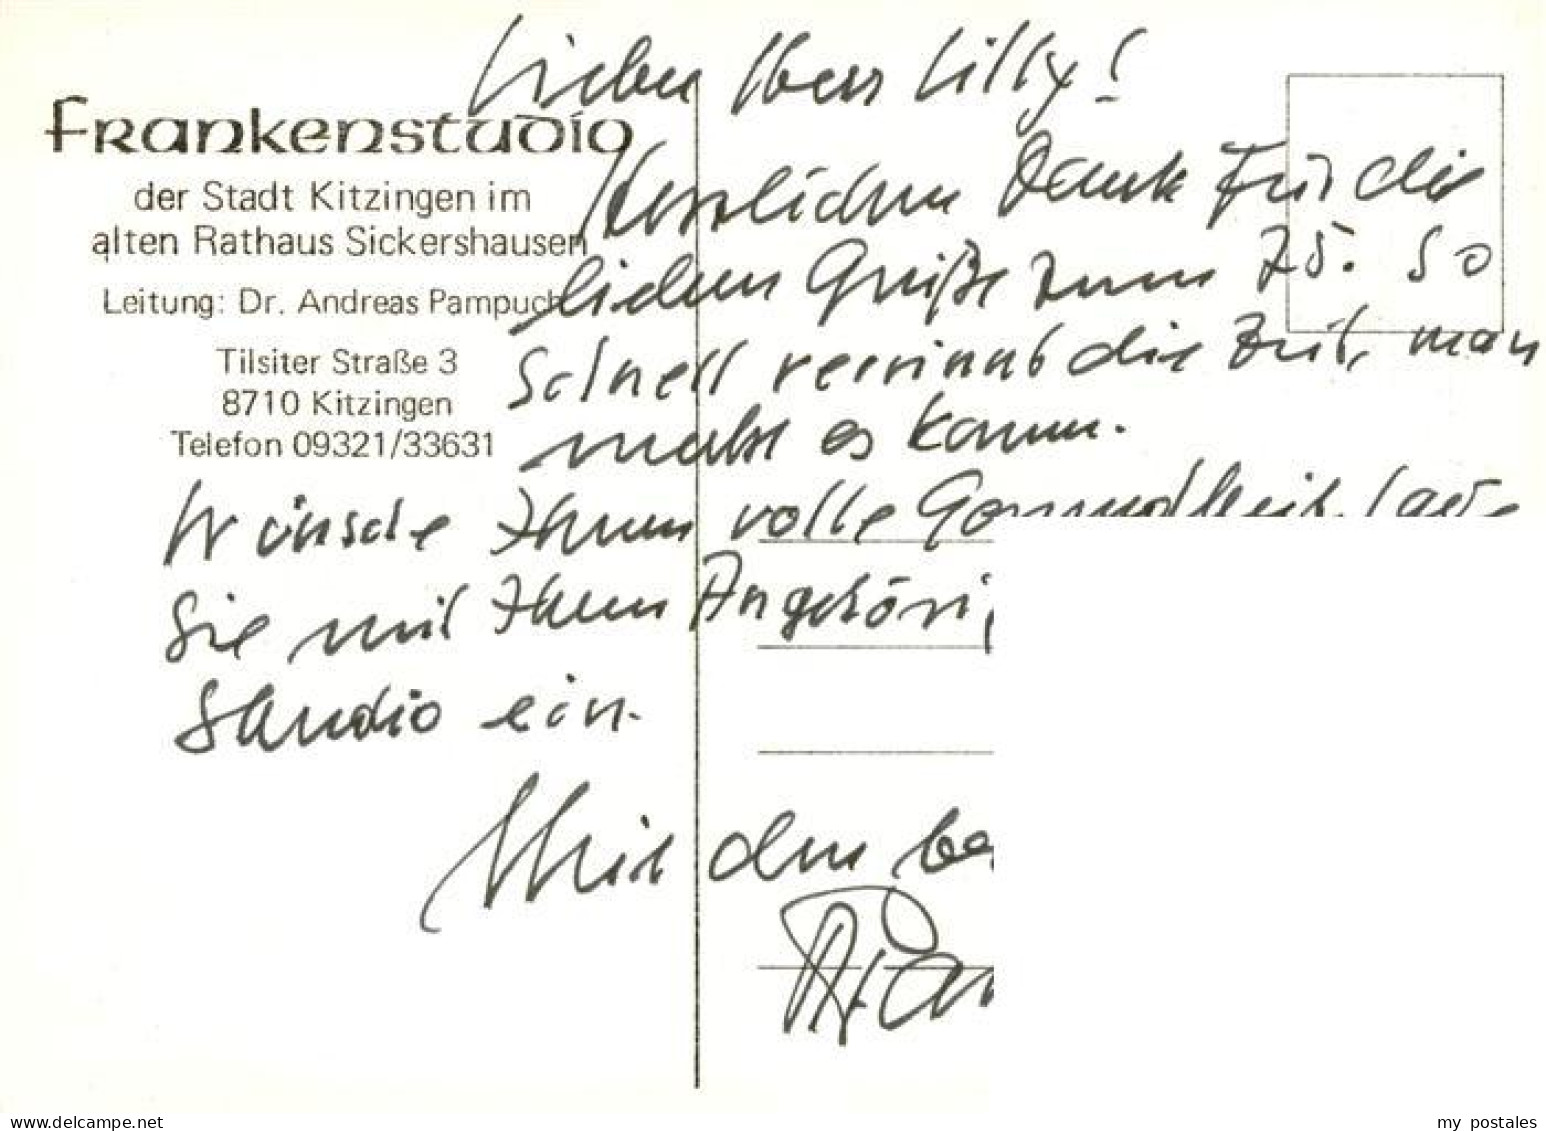 Lieber Herr Lilly!
Frankenstudio
der Stadt Kitzingen im
alten Rathaus Sickershausen
Leitung: Dr. Andreas Pampuch
Tilsiter Straße 3
8710 Kitzingen
Telefon 09321/33631
Herzlichen Dank für die
lieben Grüße zum 75. So
schnell verrinnt die Zeit, man
merkt es kaum.
Wünsche Ihnen volle Gesundheit, lade
Sie mit Ihren
Studio ein.
Mit den
delcampe.net
my postales